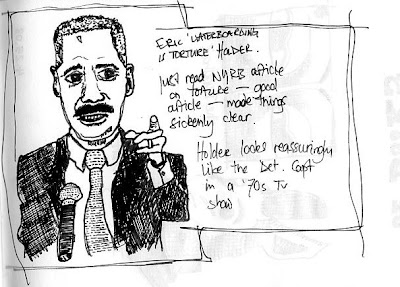 ERIC 'WATERBOARDING
IS TORTURE' HOLDER.
Just read NYRB article
on torture — good
article — made things
sickenly clear.
Holder looks reassuringly
like the Det. Capt
in a '70s TV
show